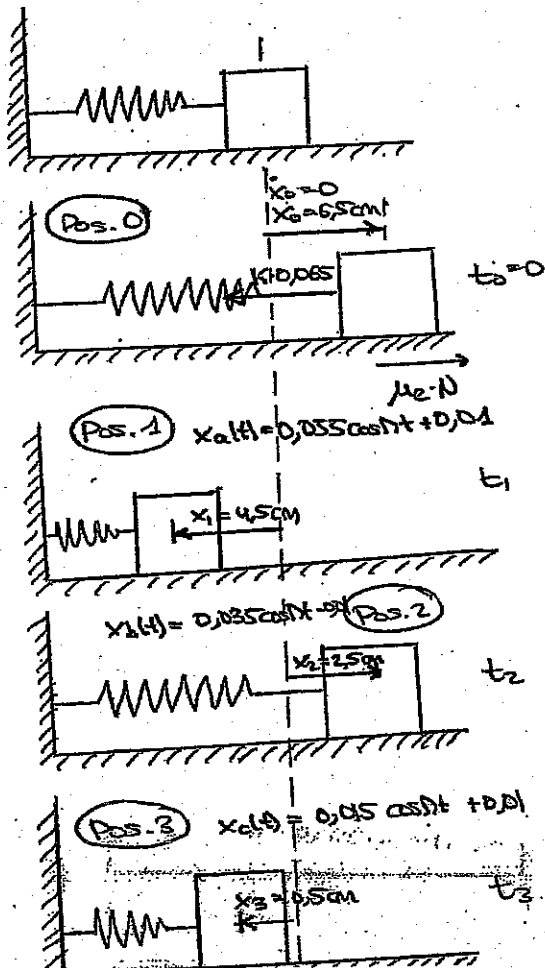 ẋ₀=0
Pos. 0
x₀=6,5cm
K·0,065
t₀=0
μe·N
Pos. 1 xa(t)=0,055cosΩt+0,01
x₁=4,5cm
t₁
xb(t)=0,035cosΩt Pos. 2
x₂=2,5cm
t₂
Pos. 3 xc(t)=0,015 cosΩt +0,01
x₃=0,5cm
t₃